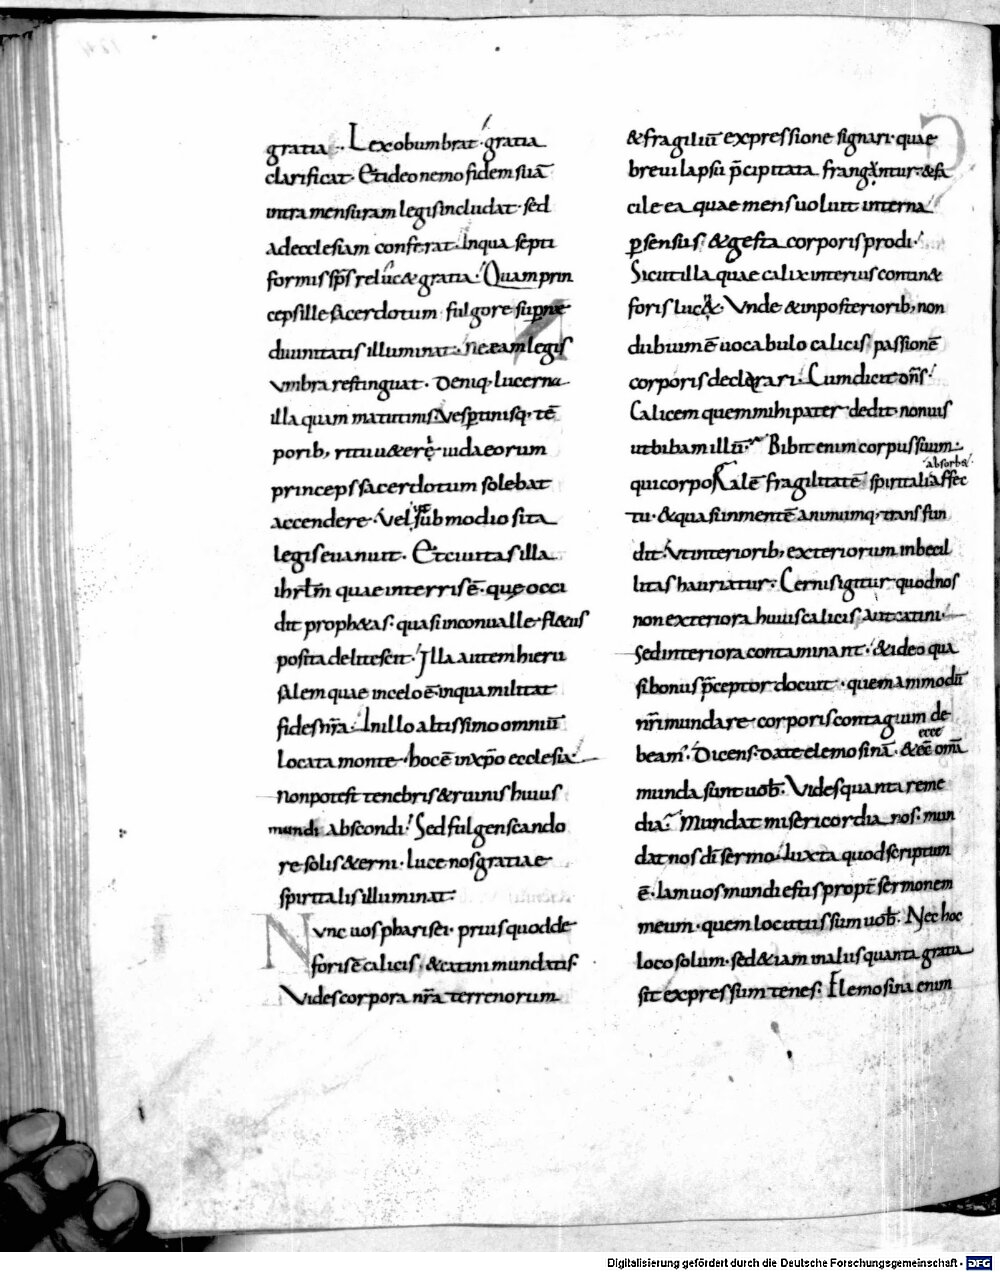 gratia. Lex obumbrat. gratia
clarificat. Et ideo nemo fidem suā
intra mensuram legis includat. sed
ad ecclesiam conferat. In qua septi
formis sps reluc& gratia. Quam prin
ceps ille sacerdotum fulgore supnae
diuinitatis illuminat. ne eam legis
vmbra restinguat. Deniq; lucerna
illa quam matutinis Vespertinisq; tē
porib; ritu u&erē iudaeorum
princeps sacerdotum solebat
accendere. Velut sub modio sita
legis euanuit. Et ciuitas illa
ihrlm̄ quae in terris ē. que occi
dit proph&as. quasi in conualle fl&us
posita delitescit. Illa autem hieru
salem quae in celo ē in qua militat
fides nr̄a. In illo altissimo omniū
locata monte. hoc ē in xp̄o ecclesia
non potest tenebris & ruinis huius
mundi abscondi. Sed fulgens eando
re solis & erni. luce nos gratiae
spiritalis illuminat.
Nvnc uos pharisei. prius quod de
foris ē calicis. & catini mundatis.
Vides corpora nr̄a terrenorum
& fragiliū expressione signari. quae
breui lapsu p̄cipitata franguntur. & fa
cile ea quae mens uoluit interna
p sensus. & gesta corporis prodi.
Sicut illa quae calix interius contin&
foris luc&. Vnde & in posteriorib; non
dubium ē uocabulo calicis passionē
corporis declarari. Cum dicit dn̄s.
Calicem quem mihi pater dedit. non uis
ut bibam illū. Bibit enim corpus suum.
absorb&
qui corporalē fragilitatē spiritali affec
tu. & quasi in mentē animumq; transfun
dit. Vt interiorib; exteriorum inbecil
litas hauriatur. Cernis igitur quod nos
non exteriora huius calicis aut catini.
Sed interiora contaminant. & ideo qua
si bonus p̄ceptor docuit. quemammodū
nr̄i mundare corporis contagium de
ecce
beam. Dicens. Date elemosinā. & ecē omā
munda sunt uob. Vides quanta reme
dia. Mundat misericordia nos. mun
dat nos dī sermo. Iuxta quod scriptum
ē. Iam uos mundi estis propt̄ sermonem
meum. quem locutus sum uob. Nec hoc
loco solum. sed & iam in alus quanta gratia
sit expressum tenes. Elemosina enim
Digitalisierung gefördert durch die Deutsche Forschungsgemeinschaft - DFG